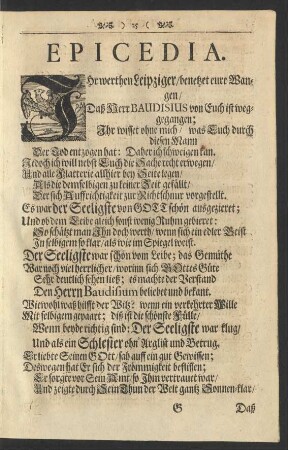 ) 25 (
EPICEDIA.
IHr werthen Leipziger / benetzet eure Wan-
gen /
Daß Herr BAUDISIUS von Euch ist weg-
gegangen;
Ihr wisset ohne mich / was Euch durch
diesen Mann
Der Tod entzogen hat: Daher ich schweigen kan.
Jedoch ich will nebst Euch die Sache recht erwegen /
Und alle Flatterie allhier bey Seite legen /
Als die demselbigen zu keiner Zeit gefällt /
Der sich Auffrichtigkeit zur Richtschnur vorgestellt.
Es war der Seeligste von GOTT schön ausgezieret;
Und ob dem Leibe gleich sonst wenig Ruhm gebüret:
So schätzt man Ihn doch werth / wenn sich ein edler Geist
In selbigem so klar / als wie im Spiegel weist.
Der Seeligste war schön vom Leibe; das Gemüthe
War noch viel herrlicher / worinn sich GOttes Güte
Sehr deutlich sehen ließ; es machte der Verstand
Den Herrn Baudisium beliebet und bekant.
Wiewohl was hilfft der Witz: wenn ein verkehrter Wille
Mit selbigem gepaart; diß ist die schönste Fülle /
Wenn beyde richtig sind: Der Seeligste war klug /
Und als ein Schlesier ohn Arglist und Betrug.
Er liebte Seinen GOtt / sah auff ein gut Gewissen;
Deswegen hat Er sich der Frömmigkeit beflissen;
Er sorgte vor Sein Amt / so Ihm vertrauet war /
Und zeigte durch Sein Thun der Welt gantz Sonnen-klar /
G Daß